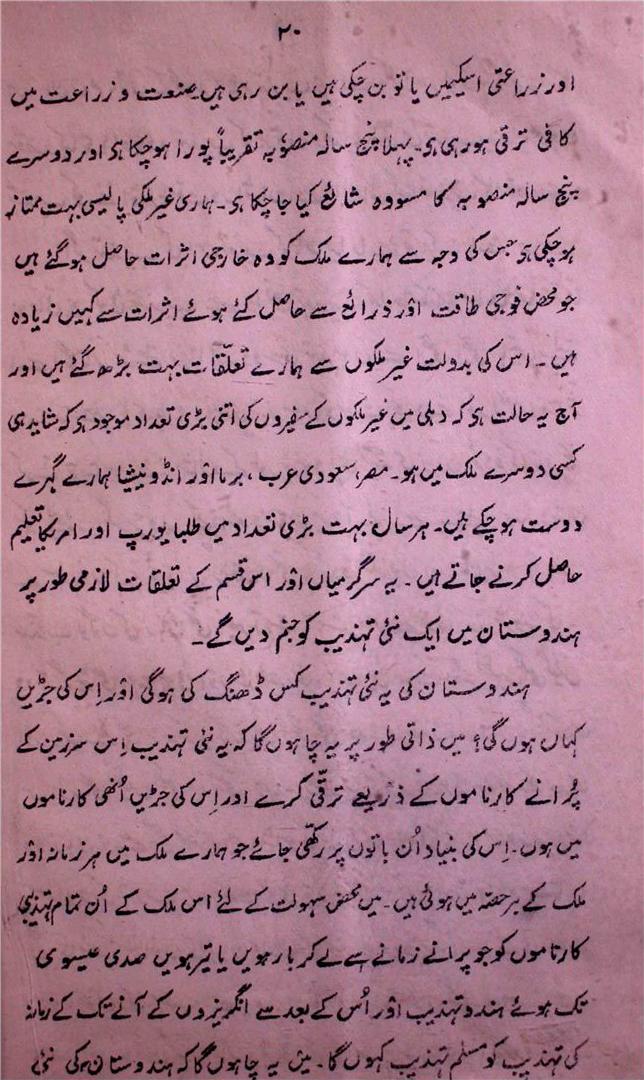 ۲۰
اور زراعتی اسکیمیں یا تو بن چکی ہیں یا بن رہی ہیں۔ صنعت و زراعت میں
کافی ترقی ہو رہی ہی۔ پہلا پنچ سالہ منصوبہ تقریباً پورا ہوچکا ہی اور دوسرے
پنچ سالہ منصوبہ کا مسودہ شائع کیا جا چکا ہی۔ ہماری غیر ملکی پالیسی بہت ممتاز
ہوچکی ہی جس کی وجہ سے ہمارے ملک کو وہ خارجی اثرات حاصل ہوگئے ہیں
جو محض فوجی طاقت اور ذرائع سے حاصل کئے ہوئے اثرات سے کہیں زیادہ
ہیں۔ اس کی بدولت غیر ملکوں سے ہمارے تعلّقات بہت بڑھ گئے ہیں اور
آج یہ حالت ہی کہ دہلی میں غیر ملکوں کے سفیروں کی اتنی بڑی تعداد موجود ہی کہ شاید ہی
کسی دوسرے ملک میں ہو۔ مصر، سعودی عرب، برما اور انڈونیشا ہمارے گہرے
دوست ہوچکے ہیں۔ ہر سال بہت بڑی تعداد میں طلبا یورپ اور امریکا تعلیم
حاصل کرنے جاتے ہیں۔ یہ سرگرمیاں اور اس قسم کے تعلقات لازمی طور پر
ہندوستان میں ایک نئی تہذیب کو جنم دیں گے۔
ہندوستان کی یہ نئی تہذیب کس ڈھنگ کی ہوگی اور اِس کی جڑیں
کہاں ہوں گی؟ میں ذاتی طور پر یہ چاہوں گا کہ یہ نئی تہذیب اِس سرزمین کے
پُرانے کارناموں کے ذریعے ترقّی کرے اور اِس کی جڑیں اُنھی کارناموں
میں ہوں۔ اِس کی بنیاد اُن باتوں پر رکھّی جائے جو ہمارے ملک میں ہر زمانہ اور
ملک کے ہر حصّہ میں ہوئی ہیں۔ میں محض سہولت کے لئے اس ملک کے اُن تمام تہذیبی
کارناموں کو جو پرانے زمانے سے لے کر بارہویں یا تیرھویں صدی عیسوی
تک ہوئے ہندو تہذیب اور اُس کے بعد سے انگریزوں کے آنے تک کے زمانہ
کی تہذیب کو مسلم تہذیب کہوں گا۔ میں یہ چاہوں گا کہ ہندوستان کی نئی